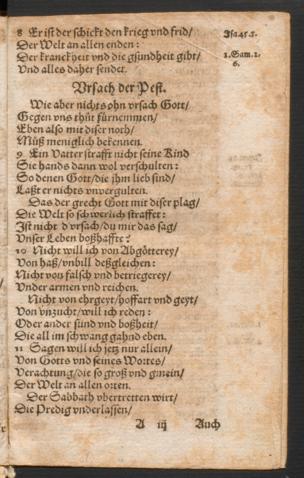 8 Er ist der schickt den krieg vnd frid/
Der Welt an allen enden:
Der kranckheit vnd die gsundheit gibt/
Vnd alles daher sendet.
Jsa 45.
1. Sam. 2.
6.
Vrsach der Pest.
Wie aber nichts ohn vrsach Gott/
Gegen vns thůt fürnemmen/
Eben also mit diser noth/
Můß meniglich bekennen.
9 Ein Vatter strafft nicht seine Kind
Sie hands dann wol verschulten:
So denen Gott/die jhm lieb sind/
Laßt er nichts vnvergulten.
Das der grecht Gott mit diser plag/
Die Welt so schwerlich straffet:
Jst nicht d'vrsach/du mir das sag/
Vnser Leben boßhaffte?
10 Nicht will ich von Abgötterey/
Von haß/vnbill deßgleichen:
Nicht von falsch vnd betriegerey/
Vnder armen vnd reichen.
Nicht von ehrgeyt/hoffart vnd geyt/
Von vnzucht/will ich reden:
Oder ander sünd vnd boßheit/
Die all im schwang gahnd eben.
11 Sagen will ich jetz nur allein/
Von Gotts vnd seines Wortes/
Verachtung/die so groß vnd gmein/
Der Welt an allen orten.
Der Sabbath vbertretten wirt/
Die Predig vnderlassen/
A iij Auch